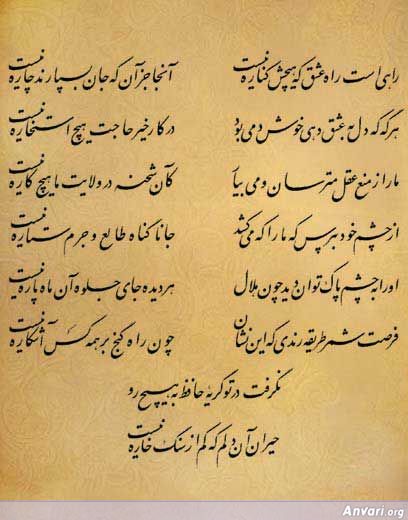 راهی است راه عشق که هیچش کناره نیست آنجا جز آن که جان بسپارند چاره نیست
هر گه که دل به عشق دهی خوش دمی بود در کار خیر حاجت هیچ استخاره نیست
ما را ز منع عقل مترسان و می بیار کآن شحنه در ولایت ما هیچ کاره نیست
از چشم خود بپرس که ما را که می کشد جانا گناه طالع و جرم ستاره نیست
او را به چشم پاک توان دید چون هلال هر دیده جای جلوه آن ماه پاره نیست
فرصت شمر طریقه رندی که این نشان چون راه گنج بر همه کس آشکاره نیست
نگرفت در تو گریه حافظ به هیچ رو
حیران آن دلم که کم از سنگ خاره نیست
Anvari.org